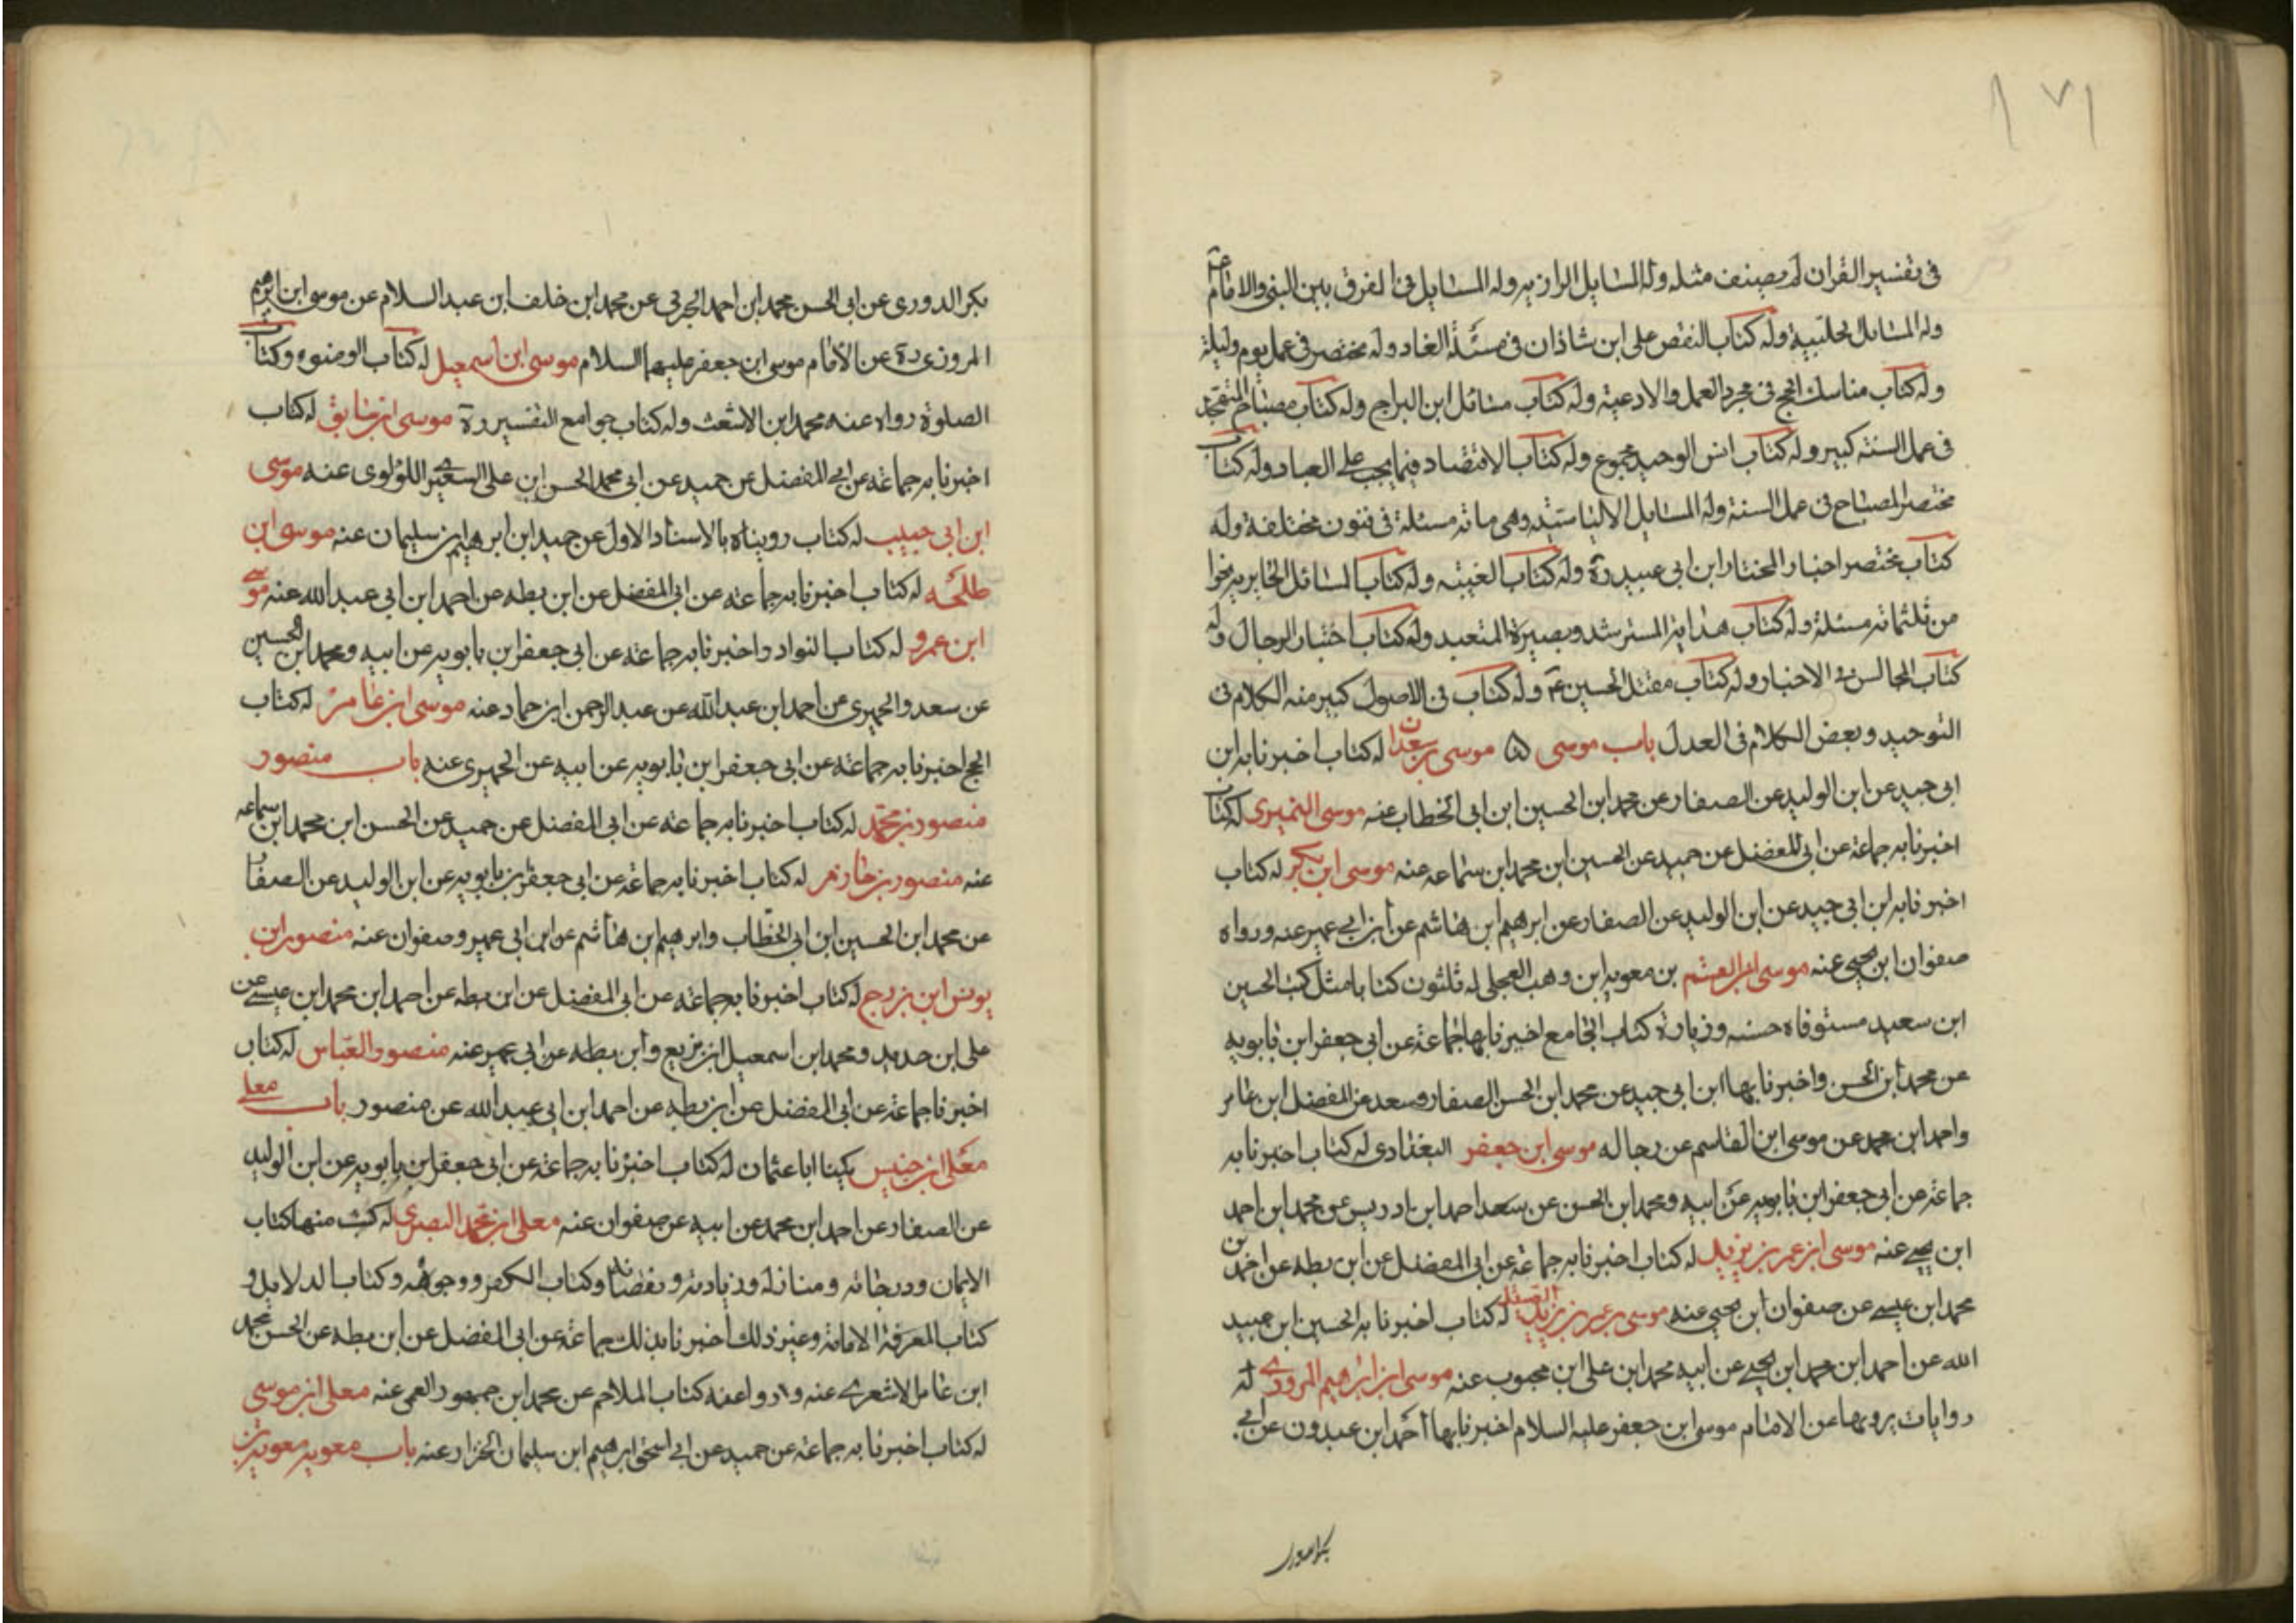 ١٧١
في تفسير القران لم يصنف مثله وله المسايل الرازيه وله المسايل في الفرق بين النبي والامام
وله المسايل الحلبية وله كتاب النقض على ابن شاذان في مسئلة الغار وله مختصر في عمل يوم وليلة
وله كتاب مناسك الحج في مجرد العمل والادعية وله كتاب مسائل ابن البراج وله كتاب مصباح المتهجد
في عمل السنه كبير وله كتاب انس الوحيد مجموع وله كتاب الاقتصاد فيما يجب على العباد وله كتاب
مختصر المصباح في عمل السنة وله المسايل الالياسيه وهي مائه مسئلة في فنون مختلفة وله
كتاب مختصر اخبار المختار ابن ابي عبيد ره وله كتاب الغيبه وله كتاب المسائل الحايريه نحوا
من ثلثمائه مسئلة وله كتاب هداية المسترشد وبصيرة المتعبد وله كتاب اختيار الرجال وله
كتاب المجالس في الاخبار وله كتاب مقتل الحسين ع وله كتاب في الاصول كبير منه الكلام في
التوحيد وبعض الكلام في العدل باب موسى موسى بن سعدان له كتاب اخبرنا به ابن
ابي جيد عن ابن الوليد عن الصفار عن محمد ابن الحسين ابن ابي الخطاب عنه موسى النميري له كتاب
اخبرنا به جماعة عن ابي المفضل عن حميد عن الحسين ابن محمد ابن سماعه عنه موسى ابن بكر له كتاب
اخبرنا به ابن ابي جيد عن ابن الوليد عن الصفار عن ابرهيم ابن هاشم عن ابن ابي عمير عنه ورواه
صفوان ابن يحيى عنه موسى ابن القسم بن معويه ابن وهب العجلي له ثلثون كتابا مثل كتب الحسين
ابن سعيد مستوفاه حسنه وزيادة كتاب الجامع اخبرنا بها جماعة عن ابي جعفر ابن بابويه
عن محمد ابن الحسن واخبرنا بها ابن ابي جيد عن محمد ابن الحسن الصفار وسعد عن المفضل ابن عامر
واحمد ابن محمد عن موسى ابن القاسم عن رجاله موسى ابن جعفر البغدادي له كتاب اخبرنا به
جماعة عن ابي جعفر ابن بابويه عن ابيه ومحمد ابن الحسن عن سعد احمد ابن ادريس عن محمد ابن احمد
ابن يحيى عنه موسى ابن عمر بن يزيد له كتاب اخبرنا به جماعة عن ابي المفضل عن ابن بطه عن احمد بن
محمد ابن عيسى عن صفوان ابن يحيى عنه موسى بن عمر بن يزيد الصيقل له كتاب اخبرنا به الحسين ابن عبيد
الله عن احمد ابن محمد ابن يحيى عن ابيه محمد ابن علي ابن محبوب عنه موسى ابن ابراهيم المروزي له
روايات يرويها عن الامام موسى ابن جعفر عليه السلام اخبرنا بها احمد ابن عبدون عن ابي
بكر الدوري
بكر الدوري عن ابي الحسن محمد ابن احمد الجرمي عن محمد ابن خلف ابن عبد السلام عن موسى ابن ابرهيم
المروزي ره عن الامام موسى ابن جعفر عليهما السلام موسى ابن اسمعيل له كتاب الوضوء وكتاب
الصلوة رواه عنه محمد ابن الاشعث وله كتاب جوامع التفسير ره موسى ابن سابق له كتاب
اخبرنا به جماعة عن ابي المفضل عن حميد عن ابي محمد الحسن ابن علي الشعيري اللؤلوي عنه موسى
ابن ابي حبيب له كتاب رويناه بالاسناد الاول عن حميد ابن ابرهيم ابن سليمان عنه موسى ابن
طلحه له كتاب اخبرنا به جماعة عن ابي المفضل عن ابن بطه عن احمد ابن ابي عبد الله عنه موسى
ابن عمرو له كتاب النوادر اخبرنا به جماعة عن ابي جعفر ابن بابويه عن ابيه ومحمد ابن الحسين
عن سعد والحميري عن احمد ابن عبد الله عن عبد الرحمن ابن حماد عنه موسى ابن عامر له كتاب
الحج اخبرنا به جماعة عن ابي جعفر ابن بابويه عن ابيه عن الحميري عنه باب منصور
منصور بن محمد له كتاب اخبرنا به جماعة عن ابي المفضل عن حميد عن الحسن ابن محمد ابن سماعه
عنه منصور بن حازم له كتاب اخبرنا به جماعة عن ابي جعفر بن بابويه عن ابن الوليد عن الصفار
عن محمد ابن الحسين ابن ابي الخطاب وابرهيم ابن هاشم عن ابن ابي عمير وصفوان عنه منصور ابن
يونس ابن بزرج له كتاب اخبرنا به جماعة عن ابي المفضل عن ابن بطه عن احمد ابن محمد ابن عيسى عن
علي ابن حديد ومحمد ابن اسمعيل ابن بزيع وابن بطه عن ابي عمير عنه منصور العباس له كتاب
اخبرنا جماعة عن ابي المفضل عن ابن بطه عن احمد ابن ابي عبد الله عن منصور باب معلى
معلى ابن خنيس يكنا ابا عثمان له كتاب اخبرنا به جماعة عن ابي جعفر ابن بابويه عن ابن الوليد
عن الصفار عن احمد ابن محمد عن ابيه عن صفوان عنه معلى ابن محمد البصري له كتب منها كتاب
الايمان ودرجاته ومنازله وزيادته ونقصانه وكتاب الكفر ووجوهه وكتاب الدلايل و
كتاب المعرفة الامامة وغير ذلك اخبرنا بذلك جماعة عن ابي المفضل عن ابن بطه عن الحسن محمد
ابن عامر الاشعري عنه و كتاب الملاحم عن محمد ابن جمهور العمي عنه معلى ابن موسى
له كتاب اخبرنا به جماعة عن حميد عن ابي اسحق ابرهيم ابن سليمان الخزار عنه باب معويه معويه بن